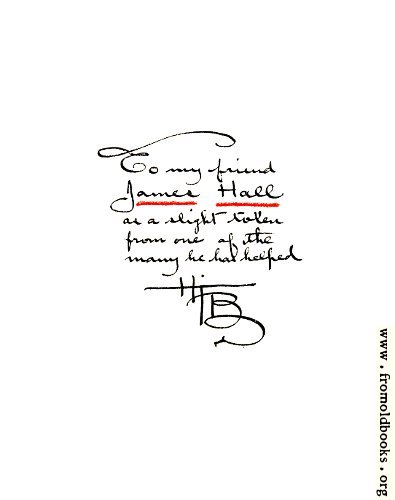 To my friend
James Hall
as a slight token
from one of the
many he has helped
HTB
www.fromoldbooks.org